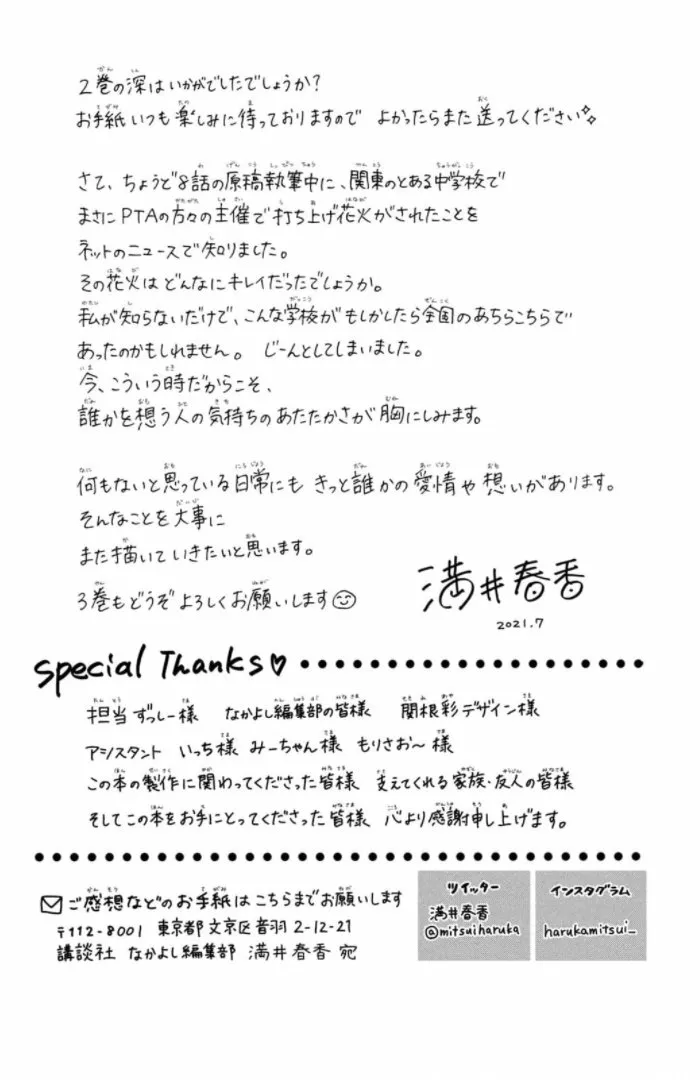 2巻の深はいかがでしたでしょうか?
お手紙いつも楽しみに待っておりますので よかったらまた送ってください
さて、ちょうど8話の原稿執筆中に、関東のとある中学校で
まさにPTAの方々の主催で打ち上げ花火がされたことを
ネットのニュースで知りました。
その花火はどんなにキレイだったでしょうか。
私が知らないだけで、こんな学校がもしかしたら全国のあちらこちらで
あったのかもしれません。 じーんとしてしまいました。
今、こういう時だからこそ、
誰かを想う人の気持ちのあたたかさが胸にしみます。
何もないと思っている日常にも きっと誰かの愛情や想いがあります。
そんなことを大事に
また描いていきたいと思います。
3巻もどうぞよろしくお願いします
満井春香
2021.7
Special Thanks♡
担当ずっしー様 なかよし編集部の皆様 関根彩デザイン様
アシスタント いっち様 みーちゃん様 もりさお〜様
この本の製作に関わってくださった皆様 支えてくれる家族・友人の皆様
そしてこの本をお手にとってくださった皆様 心より感謝申し上げます。
ご感想などのお手紙はこちらまでお願いします
〒112-8001 東京都文京区音羽2-12-21
講談社 なかよし編集部 満井春香 宛
ツイッター
満井春香
@mitsuiharuka
インスタグラム
harukamitsui_